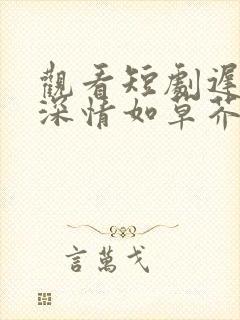 觀看短劇遲
深情如草芥
言萬戈